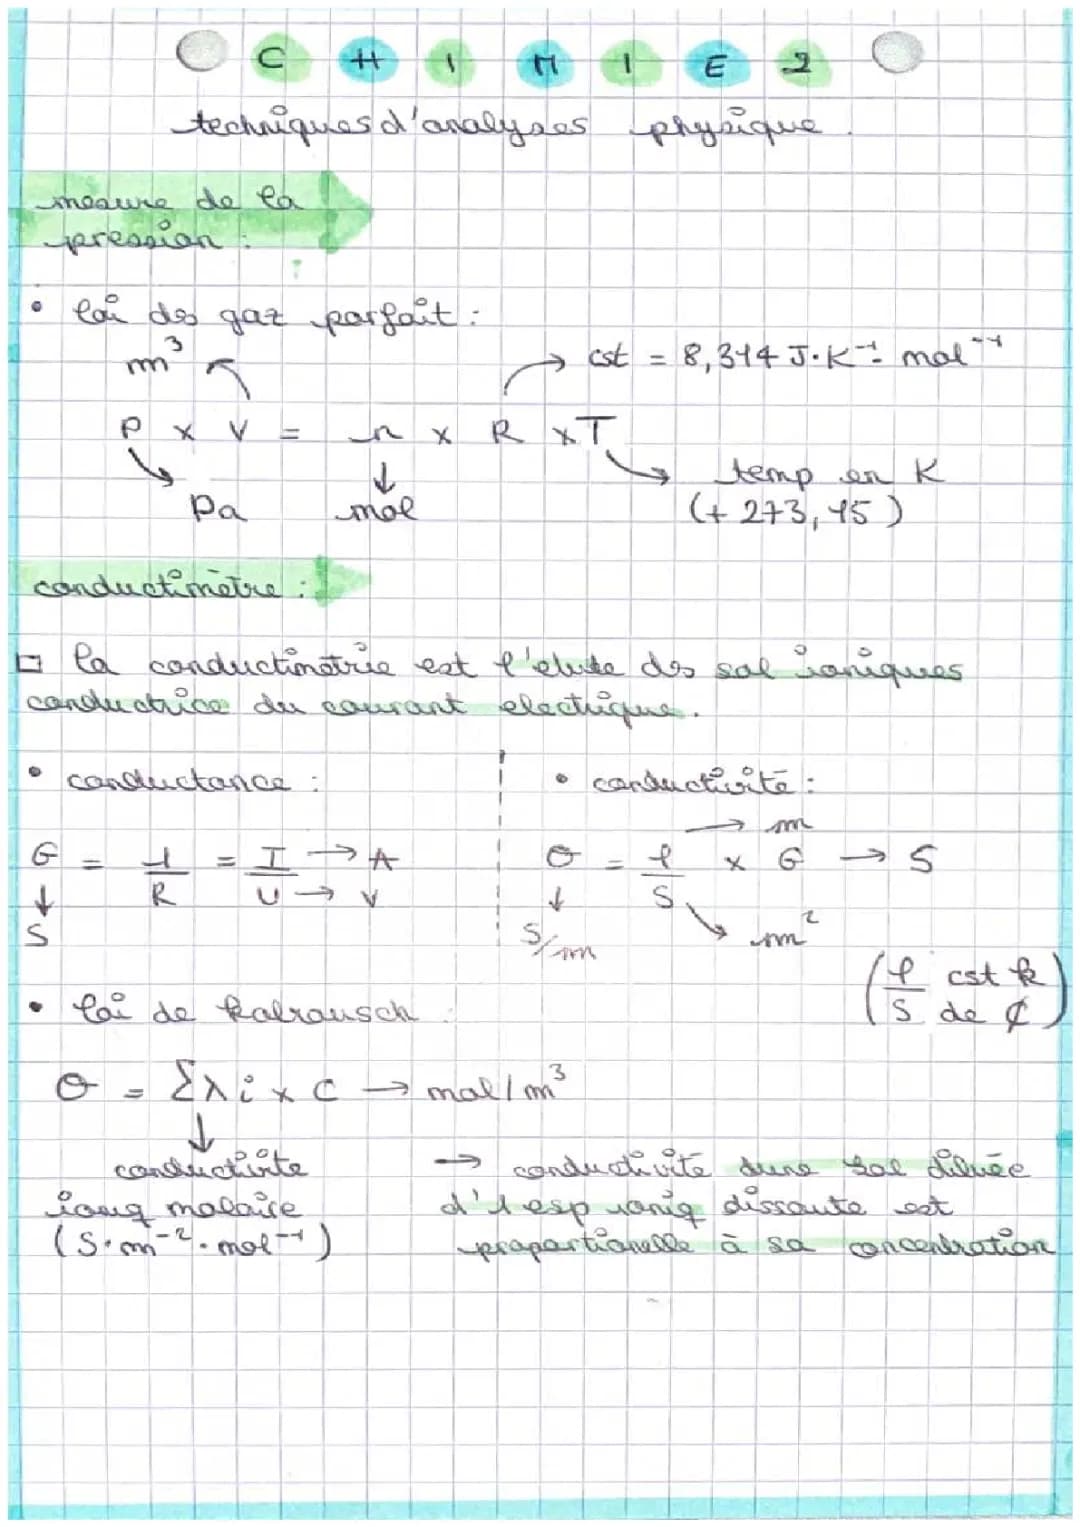 CHIMIE 2
techniques d'analyses physique.
mesure de la
pression :
• loi des gaz parfait :
m³ cst = 8,314 J·K⁻¹ mol⁻¹
P x V = n x R x T
Pa mol temp en K
(+ 273,15)
conductimètre :
□ la conductimétrie est l'etude des sol ioniques
conductrice du courant electrique.
• conductance : • conductivité :
G = 1/R = I/U → A → V
↓
S
σ = l/S x G → S
→ m
↓
S/m m²
(l/S cst k de ¢)
• loi de kolrausch :
σ = Σλi x C → mol/m³
↓
conductivite
ioniq molaire
(S·m⁻²·mol⁻¹)
→ conductivité dune sol diluée
d'1 esp ioniq dissoute est
proportionelle à sa concentration